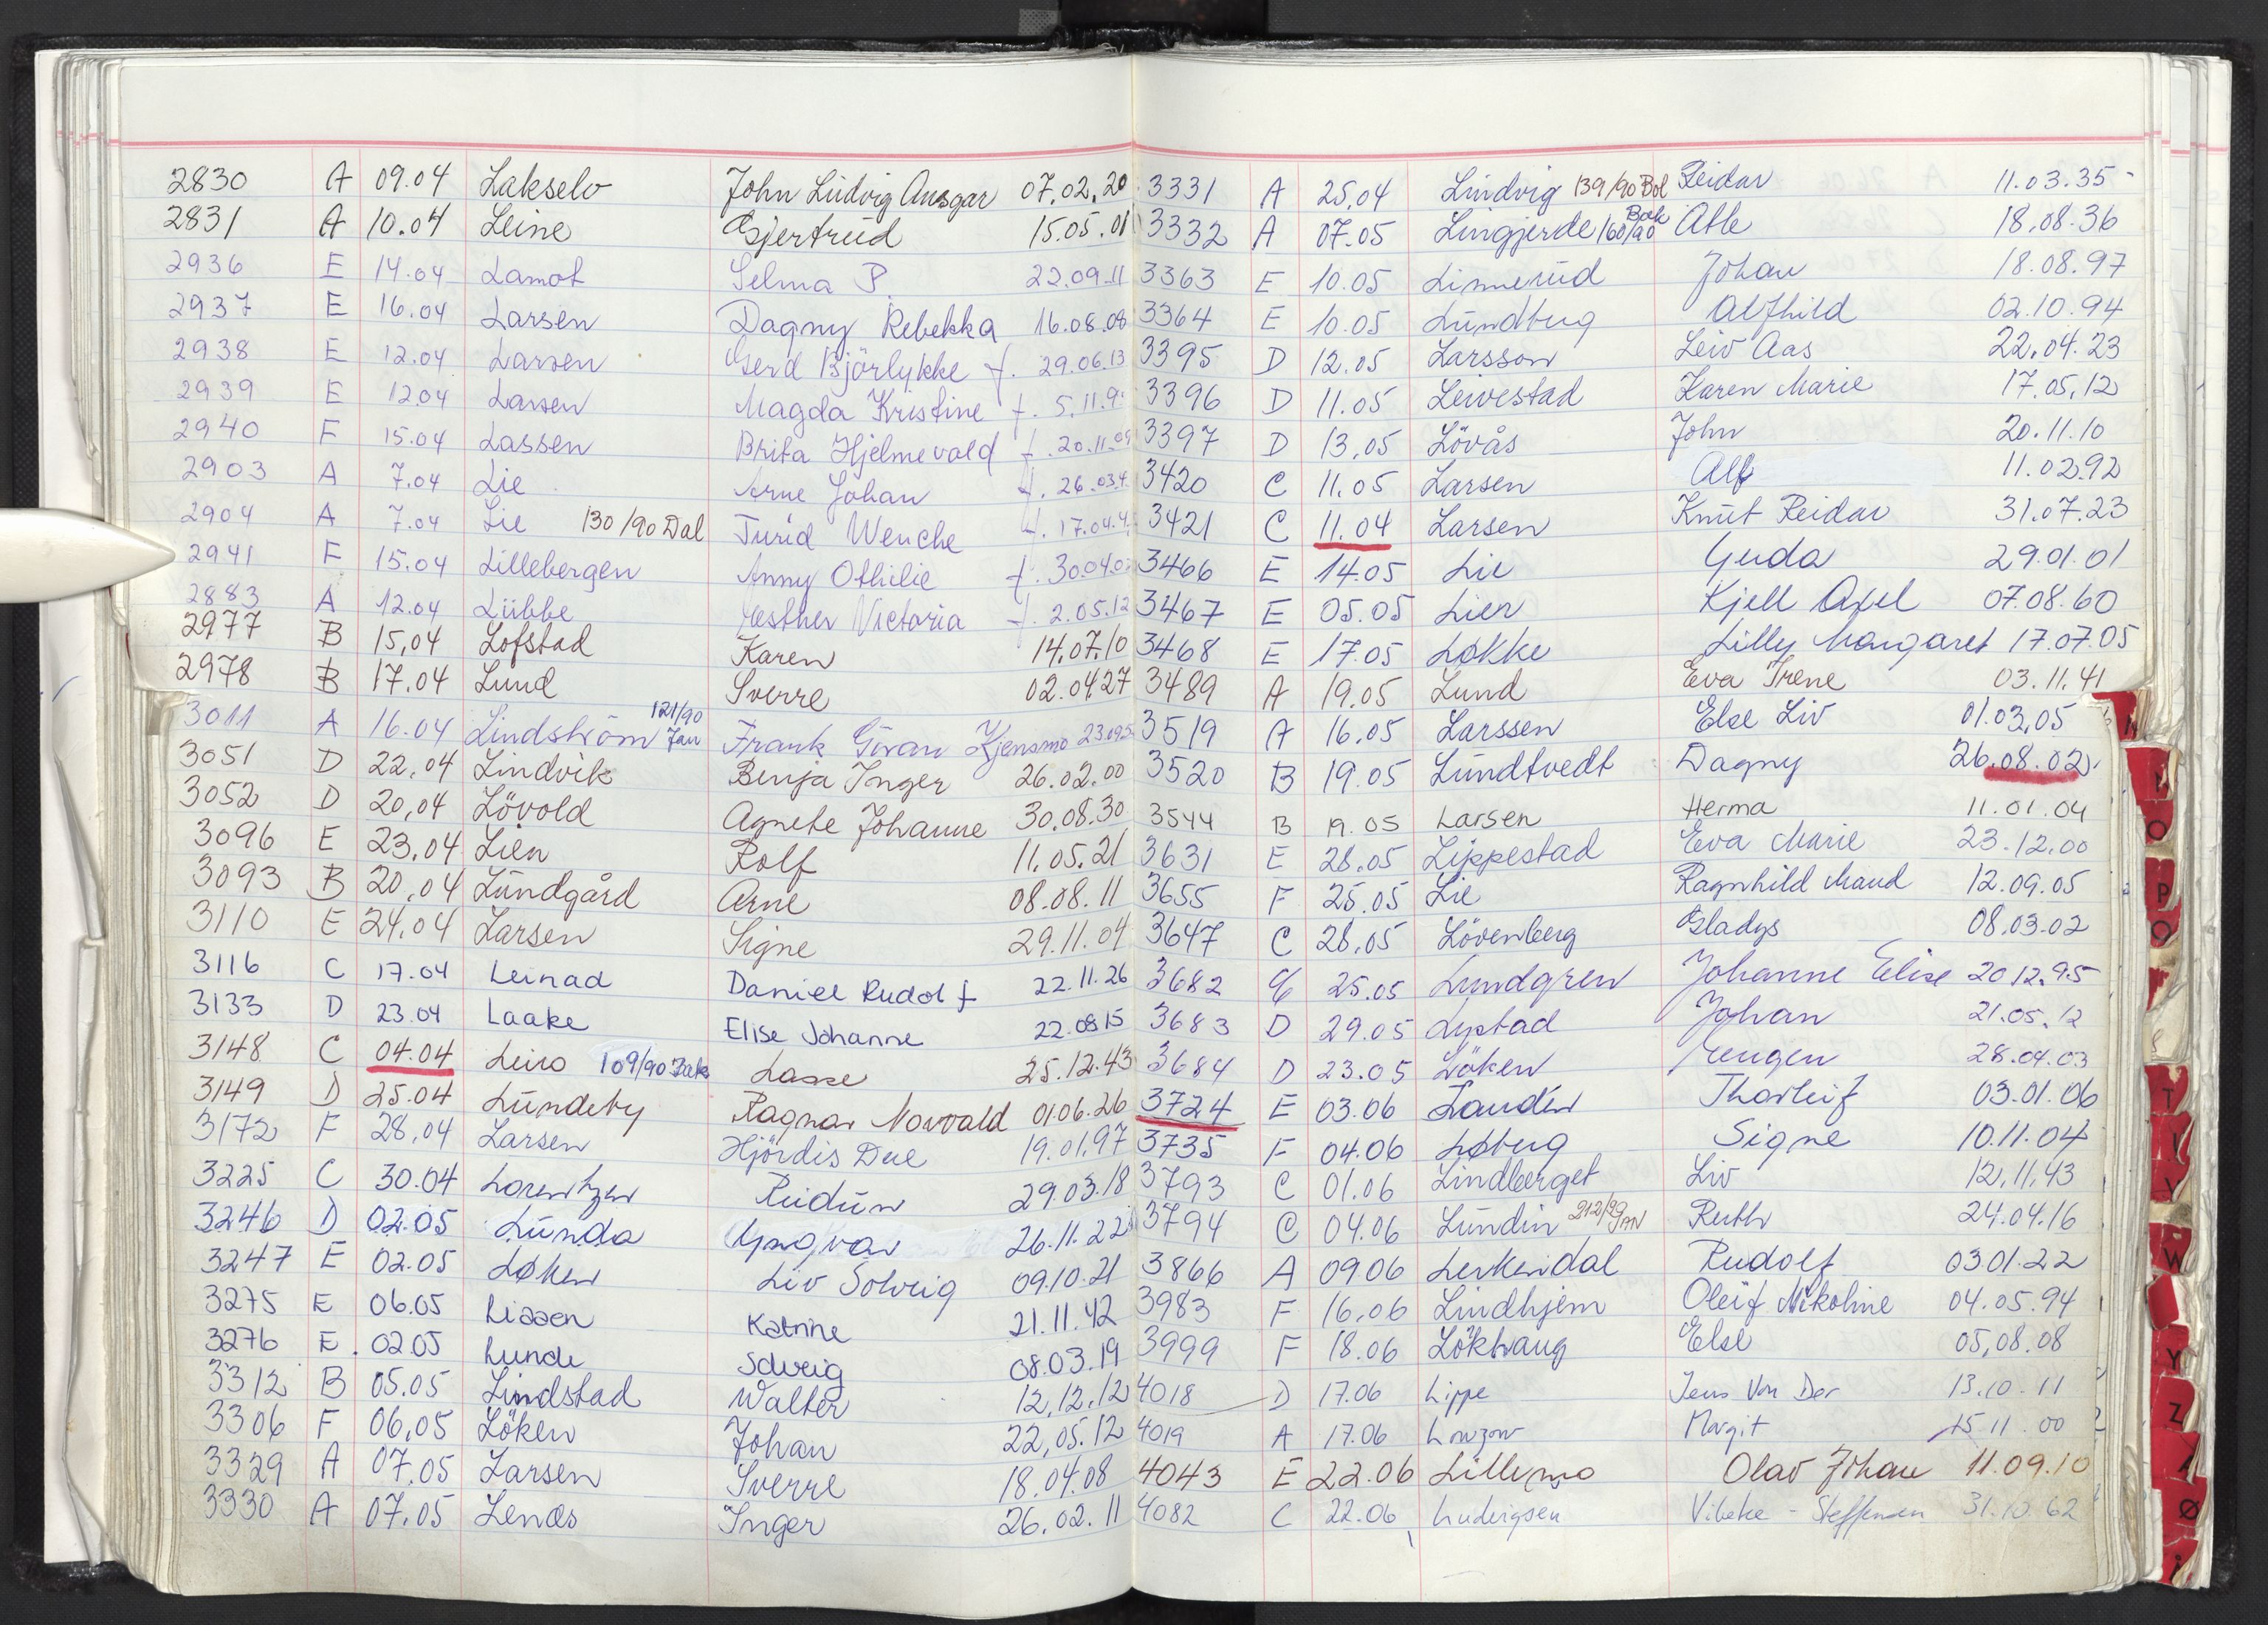 2830 A 09.04 Lakselv John Ludvig Ansgar 07.02.20
2831 A 10.04 Leine Gjertrud 15.05.01
2936 E 14.04 Lamot Selma P. 22.09.11
2937 E 16.04 Larsen Dagny Rebekka 16.08.08
2938 E 12.04 Larsen Gerd Björlykke f. 29.06.13
2939 E 12.04 Larsen Magda Kristine f. 5.11.9
2940 F 15.04 Lassen Brita Hjelmevold f. 20.11.09
2903 A 7.04 Lie Arne Johan f. 26.03.4
2904 A 7.04 Lie 130/90 Dal Turid Wenche f. 17.04.4
2941 F 15.04 Lillebergen Anny Othilie f. 30.04.0
2883 A 12.04 Lübbe Esther Victoria f. 2.05.12
2977 B 15.04 Lofstad Karen 14.07.10
2978 B 17.04 Lund Sverre 02.04 27
3011 A 16.04 Lindström 121/90 Jan Frank Göran Kjensmo 23.09.5
3051 D 22.04 Lindvik Benja Inger 26.02.00
3052 D 20.04 Lövold Agnete Johanne 30.08.30
3096 E 23.04 Lien Rolf 11.05.21
3093 B 20.04 Lundgård Arne 08.08.11
3110 E 24.04 Larsen Signe 29.11.04
3116 C 17.04 Leinad Daniel Rudolf 22.11.26
3133 D 23.04 Laake Elise Johanne 22.08 15
3148 C 04.04 Leiro 109/90 Bak Lasse 25.12.43
3149 D 25.04 Lundeby Ragnar Norvald 01.06.26
3172 F 28.04 Larsen Hjördis Due 19.01.97
3225 C 30.04 Lorentzen Reidun 29.03.18
3246 D 02.05 Lunda Yngvar 26.11.22
3247 E 02.05 Løken Liv Solveig 09.10.21
3275 E 06.05 Liaaen Katrine 21.11.42
3276 E. 02.05 Lunde Solveig 08.03.19
3312 B 05.05 Lindstad Walter 12.12.12
3306 F 06.05 Löken Johan 22.05.12
3329 A 07.05 Larsen Sverre 18.04.08
3330 A 07.05 Lenæs Inger 26.02.11
3331 A 25.04 Lindvig 139/90 Bol Reidar 11.03.35
3332 A 07.05 Lingjerde 160/90 Bak Atle 18.08.36
3363 E 10.05 Limerud Johan 18.08.97
3364 E 10.05 Lundberg Alfhild 02.10.94
3395 D 12.05 Larsson Leiv Aas 22.04.23
3396 D 11.05 Leivestad Karen Marie 17.05.12
3397 D 13.05 Lövås John 20.11.10
3420 C 11.05 Larsen Alf 11.02.92
3421 C 11.04 Larsen Knut Reidar 31.07.23
3466 E 14.05 Lie Guda 29.01.01
3467 E 05.05 Lien Kjell Axel 07.08.60
3468 E 17.05 Løkke Lilly Margaret 17.07.05
3489 A 19.05 Lund Eva Irene 03.11.41
3519 A 16.05 Larssen Else Liv 01.03.05
3520 B 19.05 Lundtvedt Dagny 26.08.02
3544 B 19.05 Larsen Herma 11.01.04
3631 E 28.05 Lippestad Eva Marie 23.12.00
3655 F 25.05 Lie Ragnhild Maud 12.09.05
3647 C 28.05 Lövenberg Gladys 08.03.02
3682 25.05 Lundgren Johanne Elise 20.12.95
3683 D 29.05 Lystad Johan 21.05.12
3684 D 23.05 Löken Jengen 28.04.03
3724 E 03.06 Lauder Thorleif 03.01.06
3735 F 04.06 Løberg Signe 10.11.04
3793 C 01.06 Lindberget Liv 12.11.43
3794 C 04.06 Lundin 212/90 JAN Ruth 24.04.16
3866 A 09 06 Lerkendal Rudolf 03.01.22
3983 F 16.06 Lindhjem Oleif Nikoline 04.05.94
3999 F 18.06 Lökhaug Else 05.08.08
4018 D 17.06 Lippe Jens Von Der 13.10.11
4019 A 17.06 Lowzow Margit 15.11.00
4043 E 22.06 Lillemo Olav Johan 11.09.10
4082 C 22.06 Ludvigsen Vibeke - Steffensen 31.10.62
N
O
P
Q
T
V
W
Y
Z
Ø